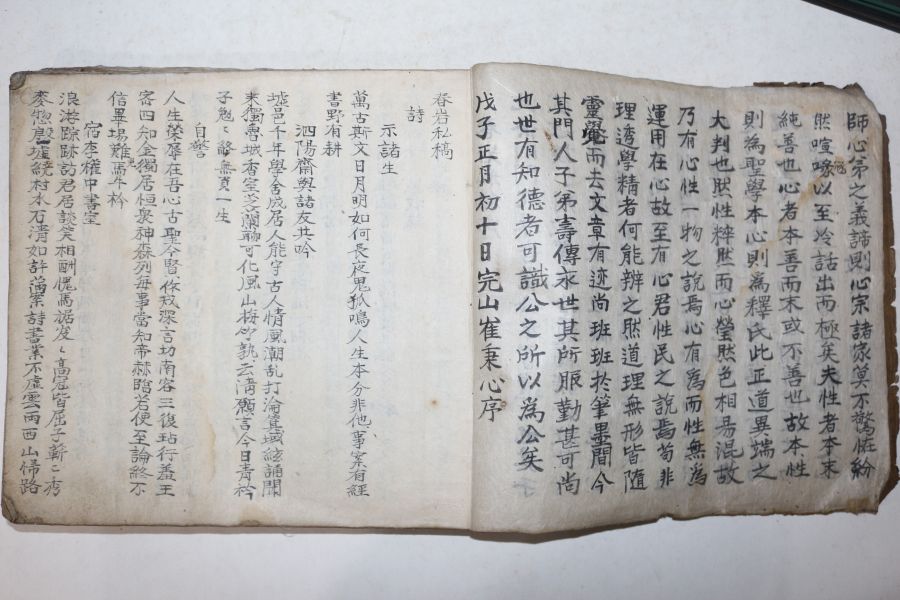 師心弟之義諦則心宗諸家莫不驚怪紛
然喧喙以至冷話出而極矣夫性者本末
純善也心者本善而末或不善也故本性
則為聖學本心則為釋氏此正道異端之
大判也然性粹然而心瑩然色相易混故
乃有心性一物之說焉心有為而性無為
運用在心故至有心君性民之說焉苟非
理透學精者何能辨之然道理無形皆隨
靈覺而去文章有迹尚班班於筆墨間今
其門人子弟壽傳永世其所服勤甚可尚
也世有知德者可識公之所以為公矣
戊子正月初十日完山崔秉心序
春岩私稿
詩
示諸生
萬古斯文日月明如何長夜鬼狐鳴人生本分非他事案有經
書野有耕
泗陽齋與諸友共吟
墟邑千年學舍成居人能守古人情風潮乱打淪異域絃誦聞
來獨魯城香室芝蘭聊可化風山梅竹孰云清願言今日青衿
子勉〻酩無負一生
自警
人生榮辱在吾心古聖今賢作戒深言切南容三復玷行羞王
密四知金獨居恒畏神森列每事當知帝赫臨若使至論終不
信異場難馬牛衿
宿李雅中書室
浪游踪跡訪君居談笑相酬愧馬裾岌〻高冠皆屈子蘄〻秀
麥憩殷墟繞村水石清如許滿案詩書業不虛雲雨西山歸路